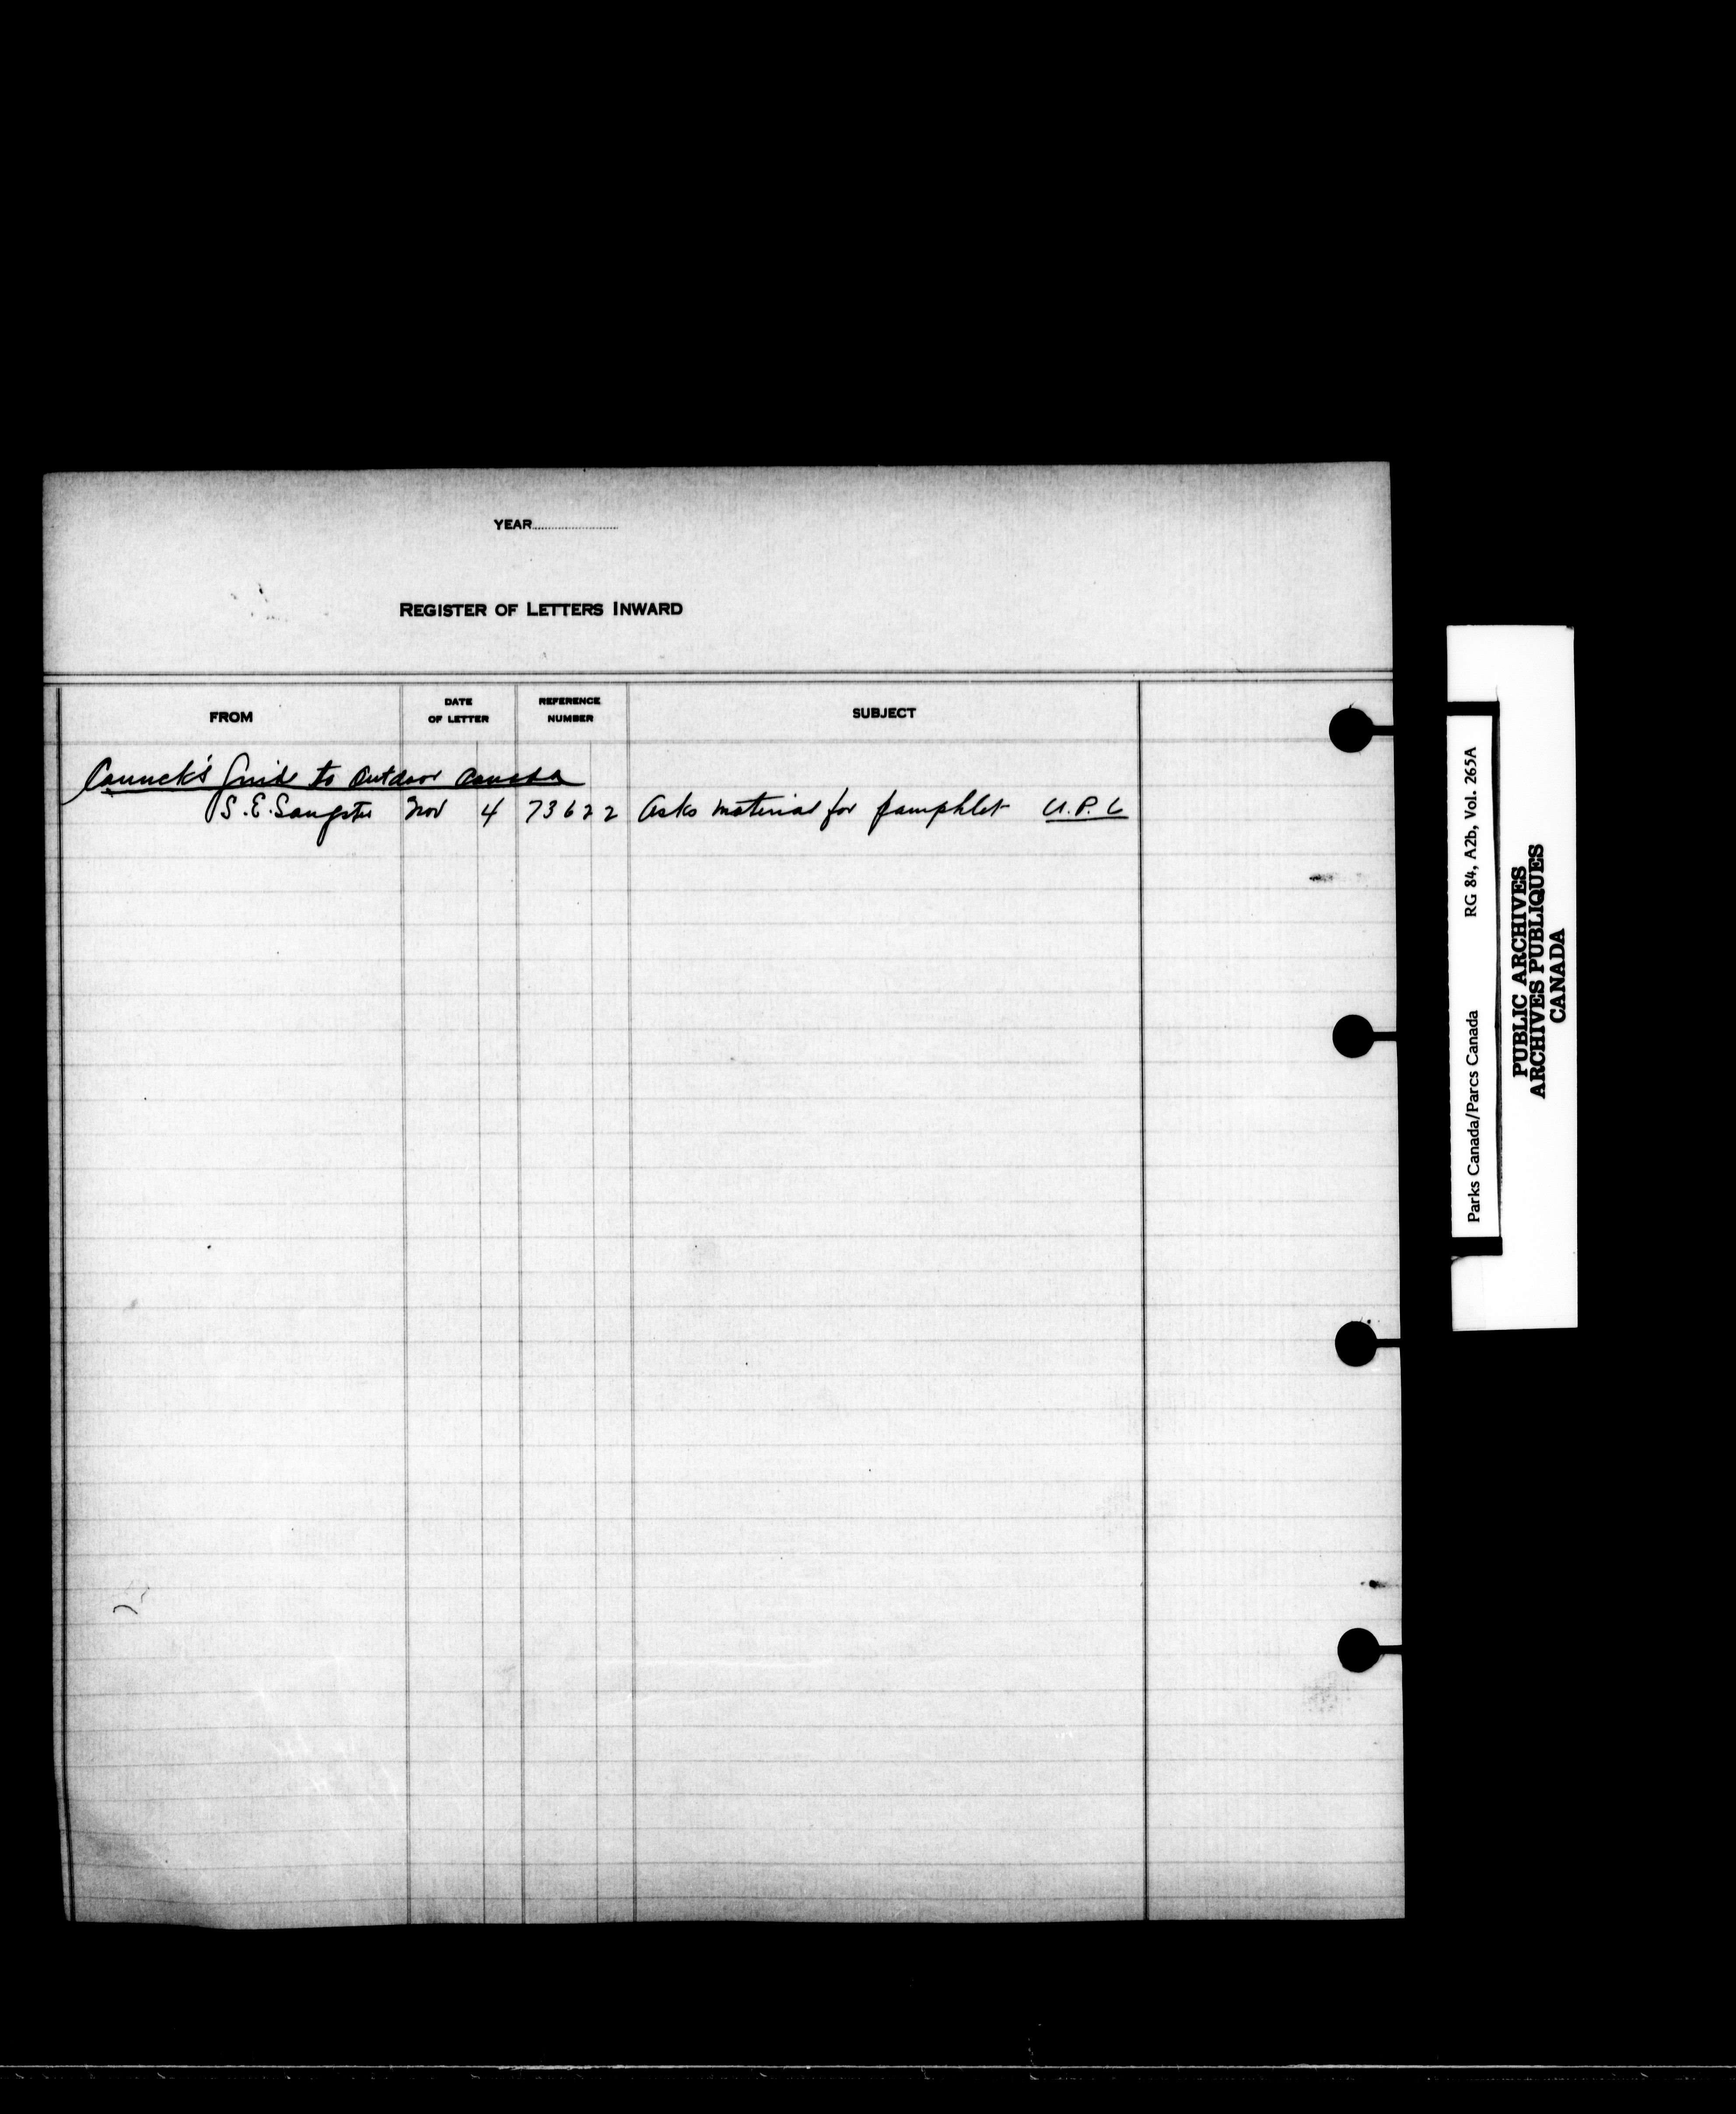 YEAR....................
REGISTER OF LETTERS INWARD
FROM
DATE
OF LETTER
REFERENCE
NUMBER
SUBJECT
Canuck's Guide to Outdoor Canada
S. E. Sangster Nov 4 73622 Asks material for pamphlet U.P.C
Parks Canada/Parcs Canada RG 84, A2b, Vol. 265A
PUBLIC ARCHIVES
ARCHIVES PUBLIQUES
CANADA